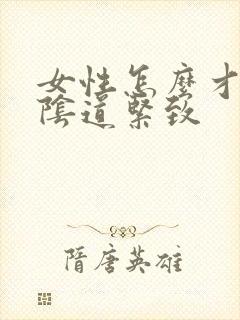 女性怎麽才
陰道緊致
隋唐英雄